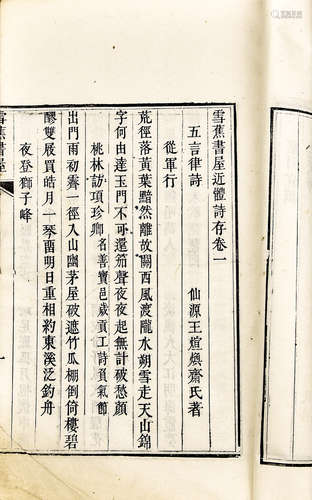 雪蕉書屋近體詩存卷一
仙源王煊燠齋氏著
五言律詩
從軍行
荒徑落黃葉黯然離故關西風渡隴水朔雪走天山錦
字何由達玉門不可還笳聲夜夜起無計破愁顏
桃林訪項珍卿名善寶邑歲貢工詩負氣節
出門雨初霽一徑入山幽茅屋破遮竹瓜棚倒倚樓碧
醪雙屐買皓月一琴留明日重相約東溪泛釣舟
夜登獅子峰
雪蕉書屋